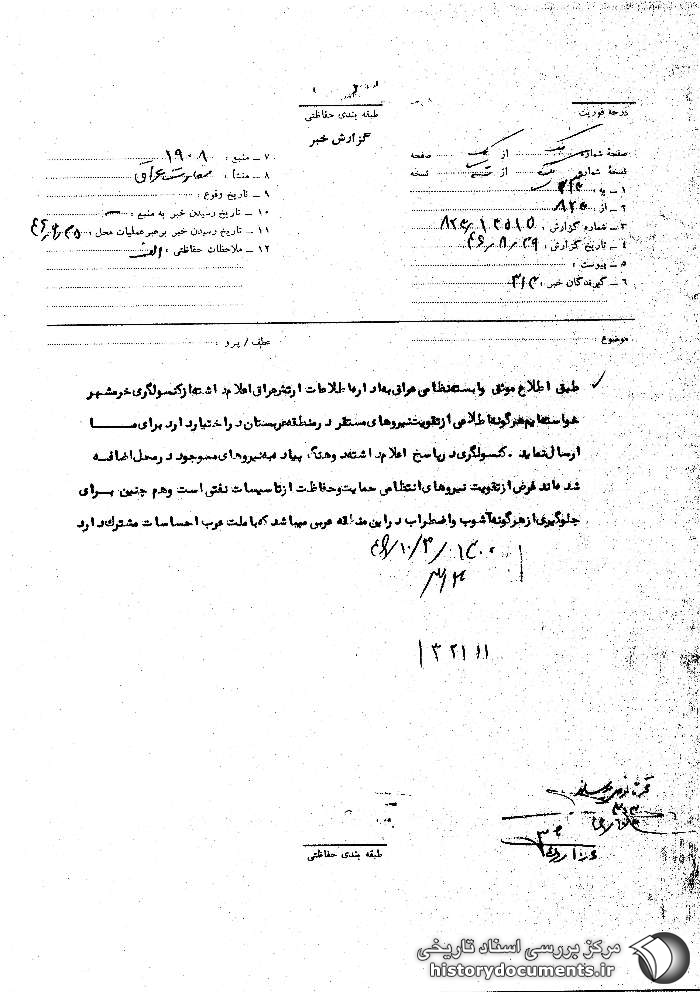 طبقه بندی حفاظتی
گزارش خبر
درجه فوریت
صفحهٔ شماره یک از یک صفحه
نسخهٔ شماره یک از نسخه
۱ ـ به : ۳۱۴
۲ ـ از : ۸۲۴
۳ ـ شماره گزارش :
۴ ـ تاریخ گزارش : ۴۶/۸/۲۹
۵ ـ پیوست :
۶ ـ گیرندگان خبر : ۳۱۴
۷ ـ منبع : ۱۹۰۸
۸ ـ منشاء : سفارت عراق
۹ ـ تاریخ وقوع :
۱۰ ـ تاریخ رسیدن خبر به منبع :
۱۱ ـ تاریخ رسیدن خبر برهبر عملیات محل :
۱۲ ـ ملاحظات حفاظتی : الف
موضوع
عطف / پیرو :
طبق اطلاع موثق وابسته نظامی عراق به اداره اطلاعات ارتش عراق اعلام داشته از کنسولگری خرمشهر
خواسته ایم هرگونه اطلاعی از تقویت نیروهای مستقر در منطقه عربستان در اختیار دارد برای مـــا
ارسال نماید . کنسولگری در پاسخ اعلام داشته دو هنگ پیاده به نیروهای موجود در محل اضافـــه
شده اند غرض از تقویت نیروهای انتظامی حمایت و حفاظت از تاسیسات نفتی است و هم چنین بـــرای
جلوگیری از هرگونه آشوب و اضطراب در این منطقه عربی میباشد که با ملت عرب احساسات مشترک دارد
۱۴۰۰
۴۶/۱۰/۳
۳۱۴
۱۳۲۱۱۱
طبقه بندی حفاظتی
مرکز بررسی اسناد تاریخی
historydocuments.ir